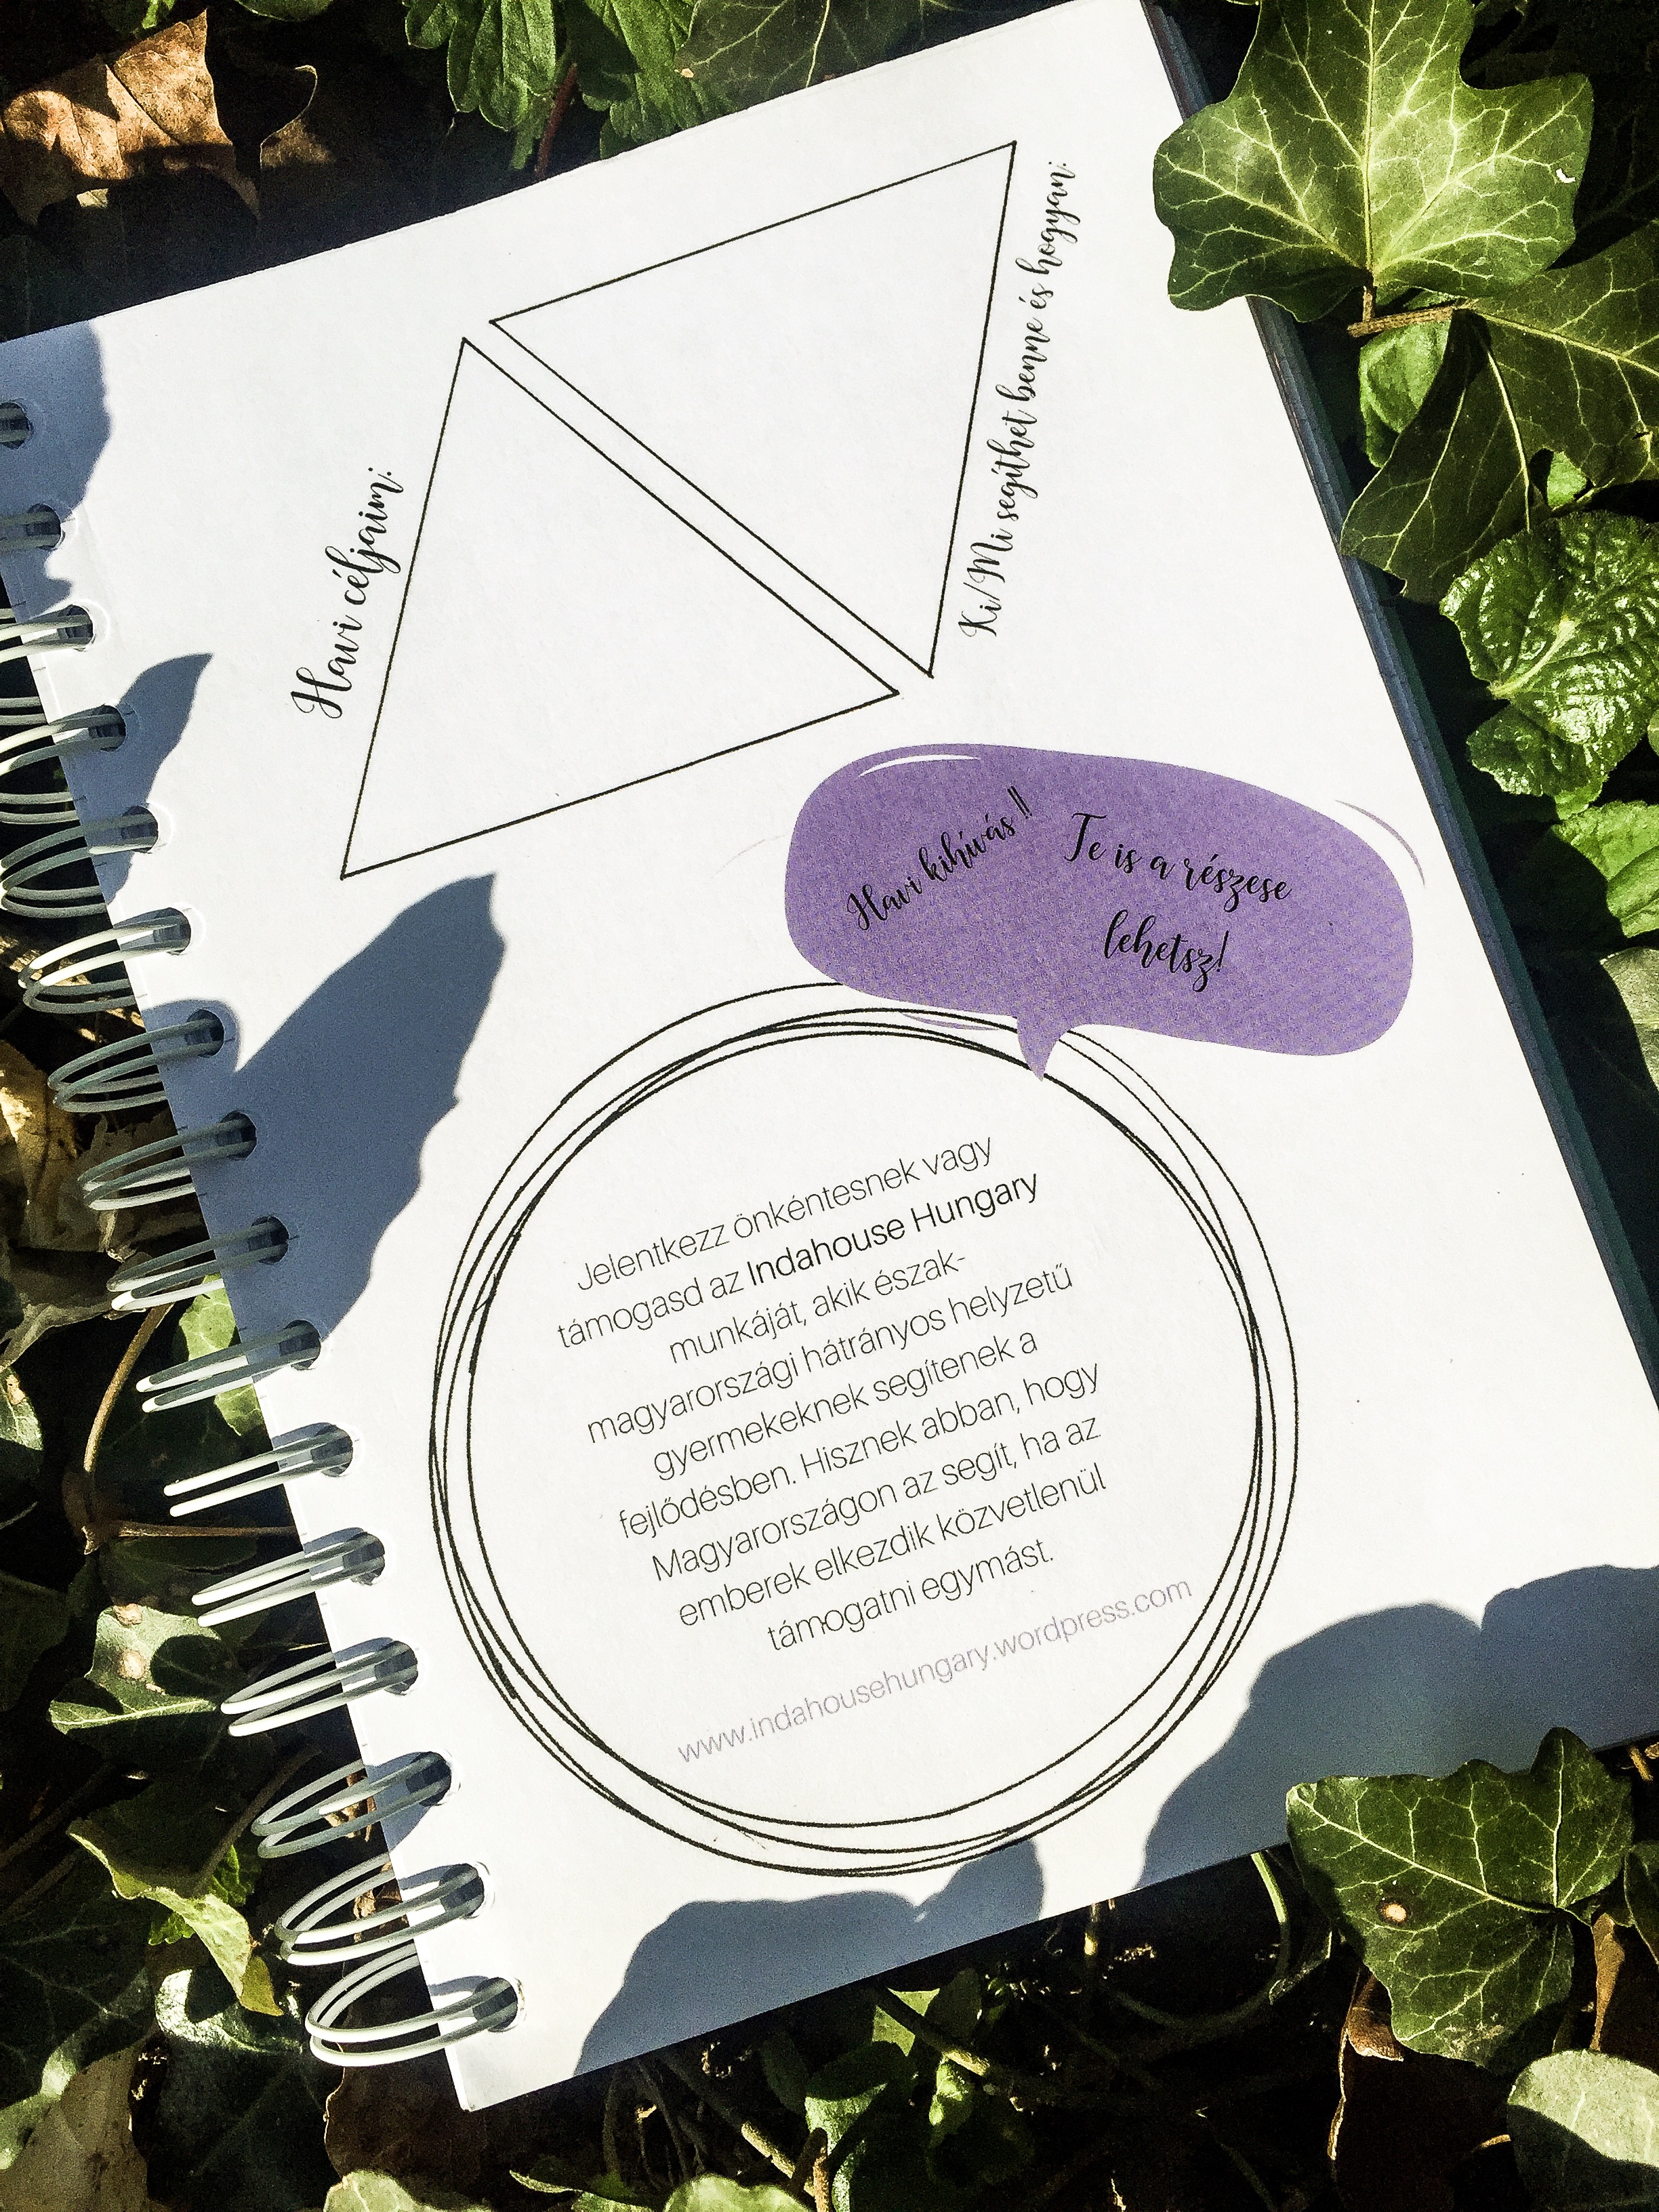 Havi céljaim:
Ki/Mi segíthet benne és hogyan:
Havi kihívás !!
Te is a részese
lehetsz!
Jelentkezz önkéntesnek vagy
támogasd az Indahouse Hungary
munkáját, akik észak-
magyarországi hátrányos helyzetű
gyermekeknek segítenek a
fejlődésben. Hisznek abban, hogy
Magyarországon az segít, ha az
emberek elkezdik közvetlenül
támogatni egymást.
www.indahousehungary.wordpress.com